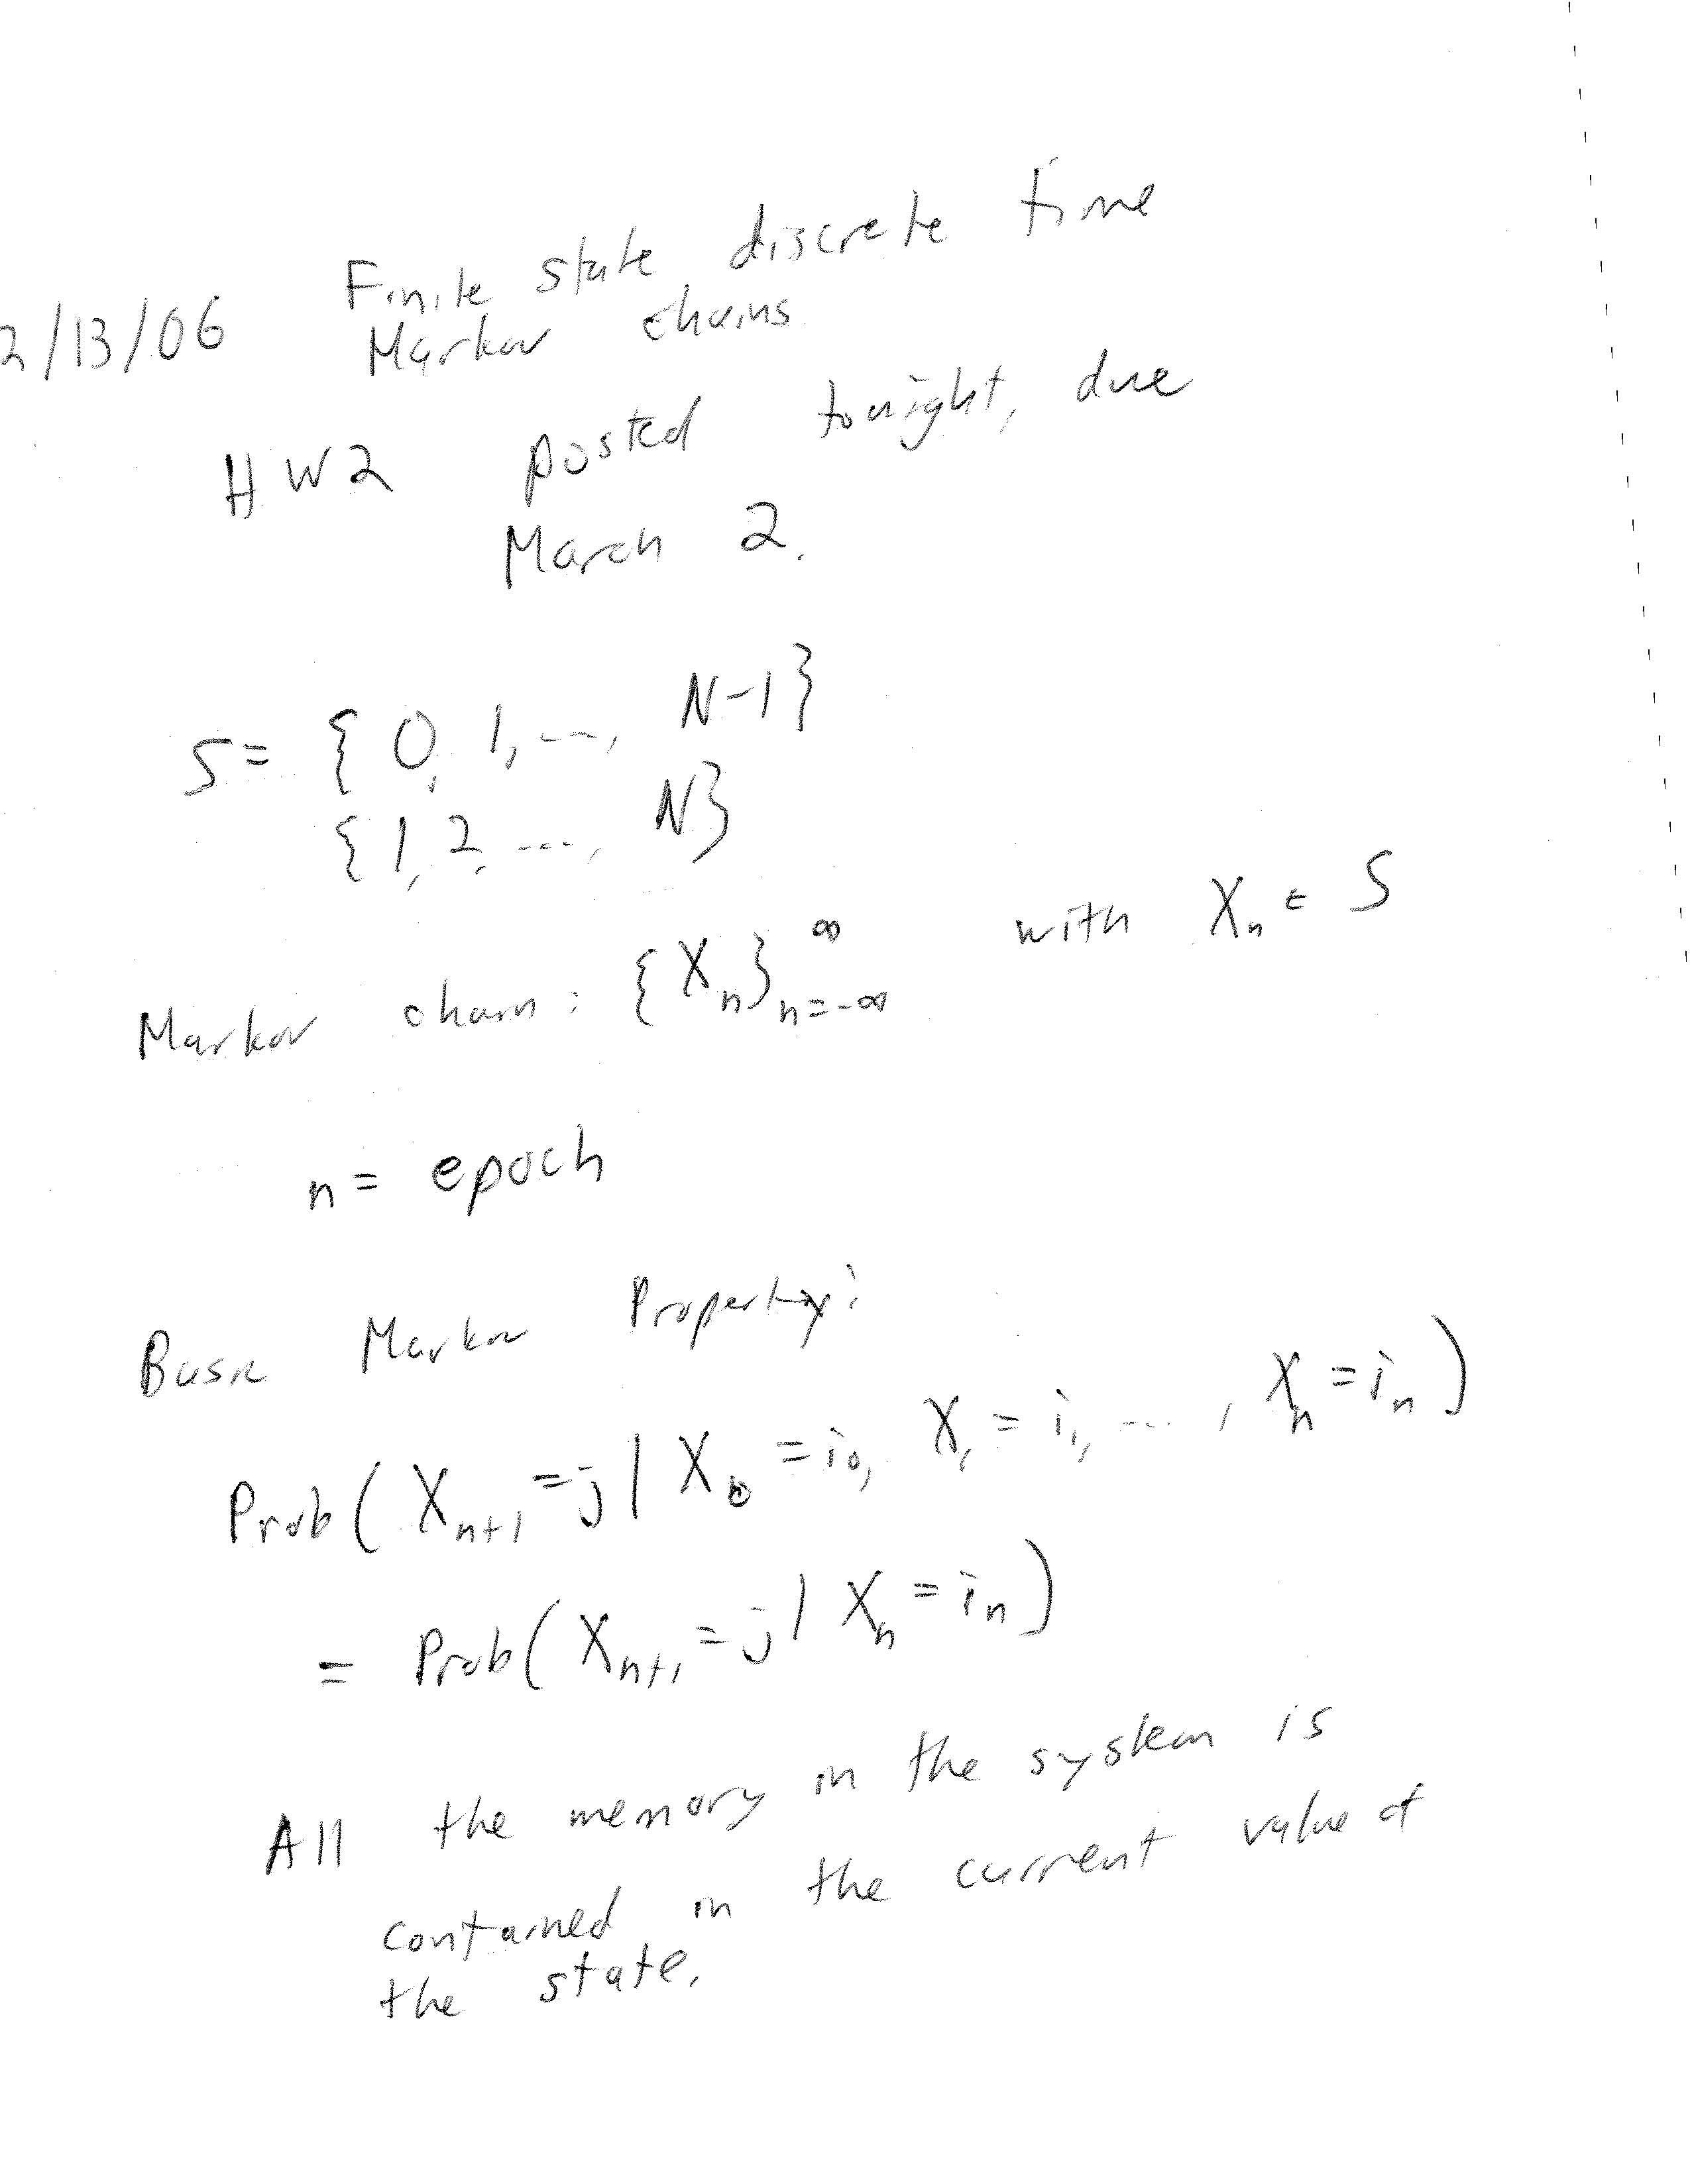 Finite state discrete time
2/13/06 Markov chains
HW2 posted tonight, due
March 2.
S = { 0, 1, ..., N-1}
{ 1, 2, ..., N}
Markov chain: {Xₙ}ₙ₌₋∞^∞ with Xₙ ∈ S
n = epoch
Basic Markov Property:
Prob( Xₙ₊₁ = j | X₀ = i₀, X₁ = i₁, ..., Xₙ = iₙ )
= Prob( Xₙ₊₁ = j | Xₙ = iₙ )
All the memory in the system is
contained in the current value of
the state.